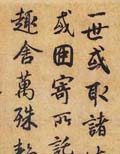 一世或取諸
或因寄所託
趣舍萬殊靜